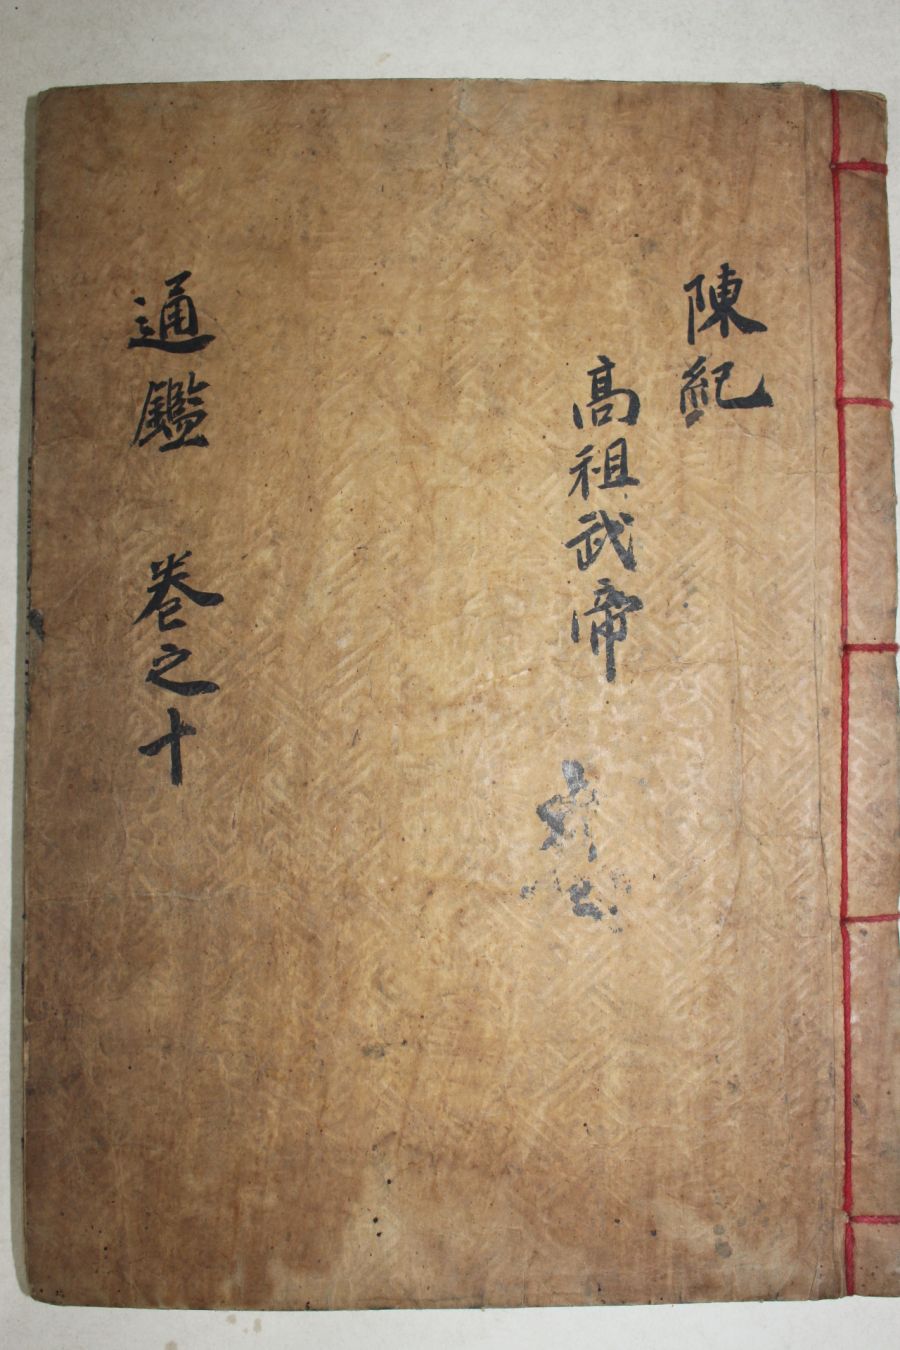 陳紀
高祖武帝
通鑑 卷之十